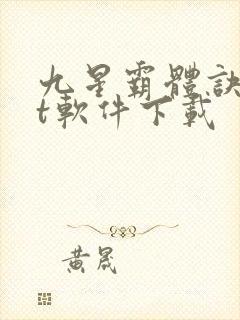 九星霸體訣
t軟件下載
黃晟